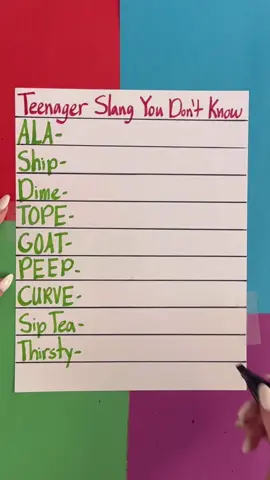 Teenager Slang You Don't Know
ALA-
Ship-
Dime-
TOPE-
GOAT-
PEEP-
CURVE-
Sip Tea-
Thirsty-